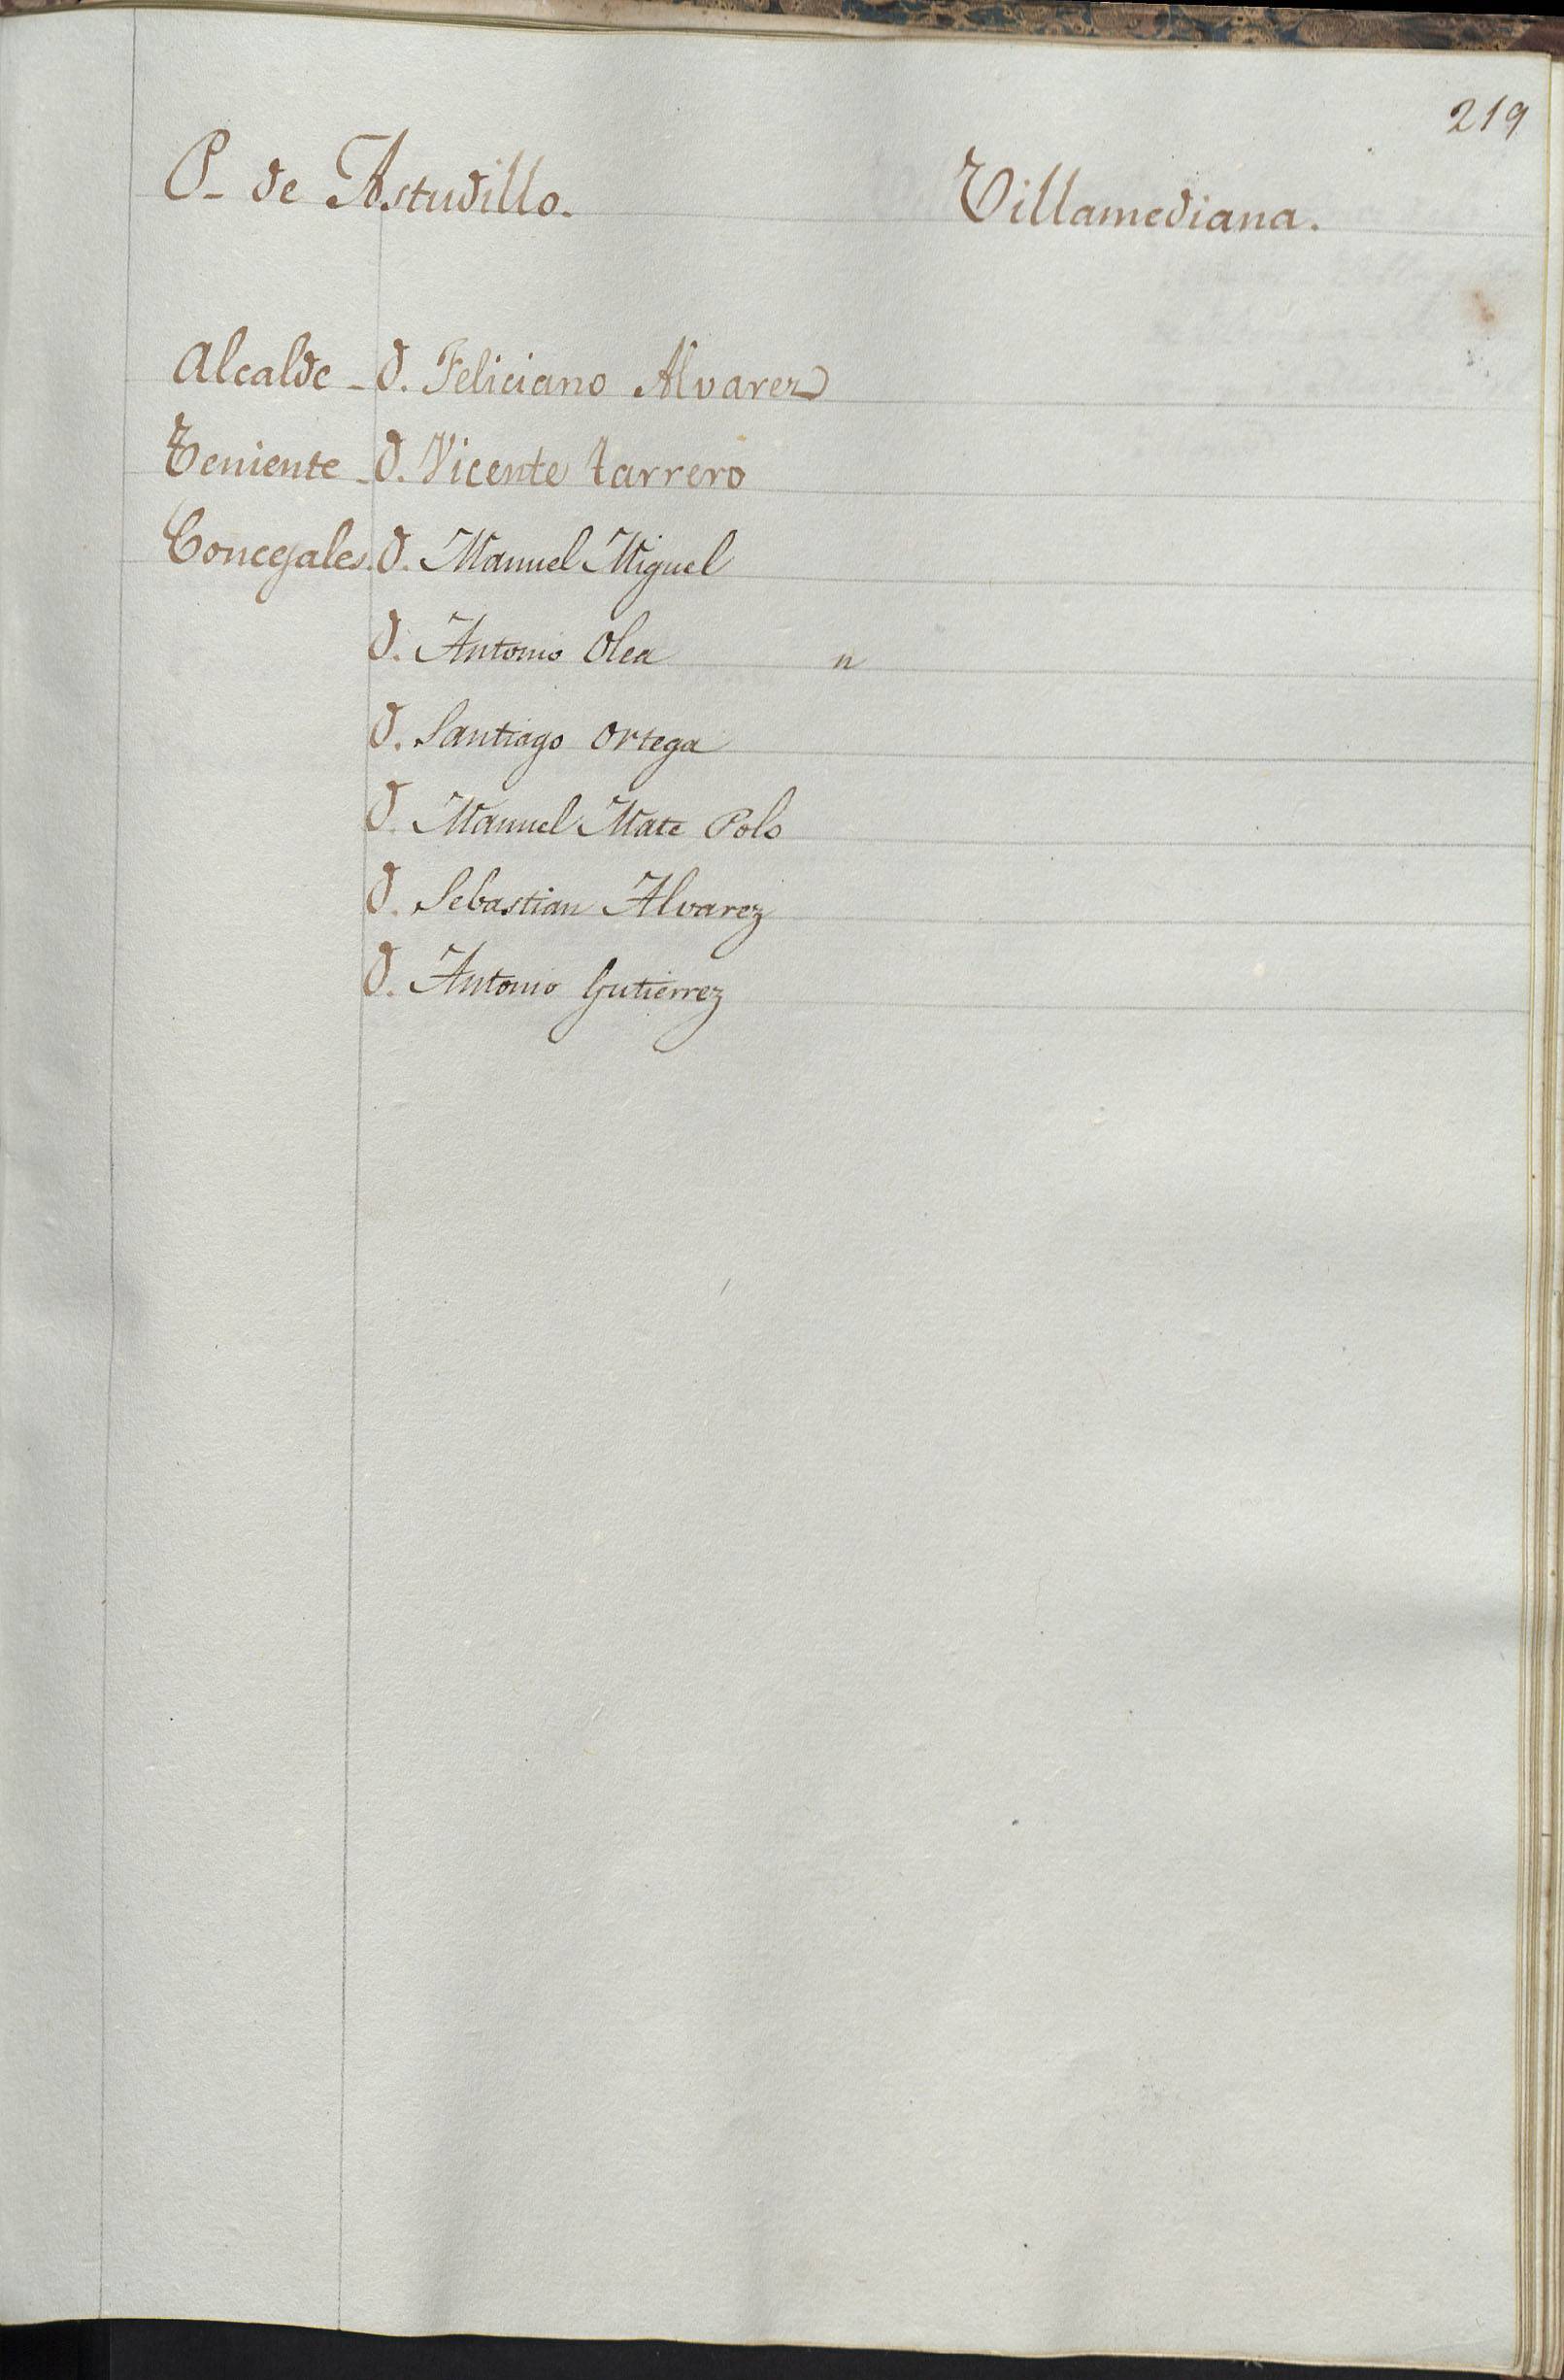 219
P- de Astudillo. Villamediana.
Alcalde - D. Feliciano Alvarez
Teniente - D. Vicente tarrero
Concejales. D. Manuel Miguel
D. Antonio Olea "
D. Santiago Ortega
D. Manuel Mate Polo
D. Sebastian Alvarez
D. Antonio Gutierrez